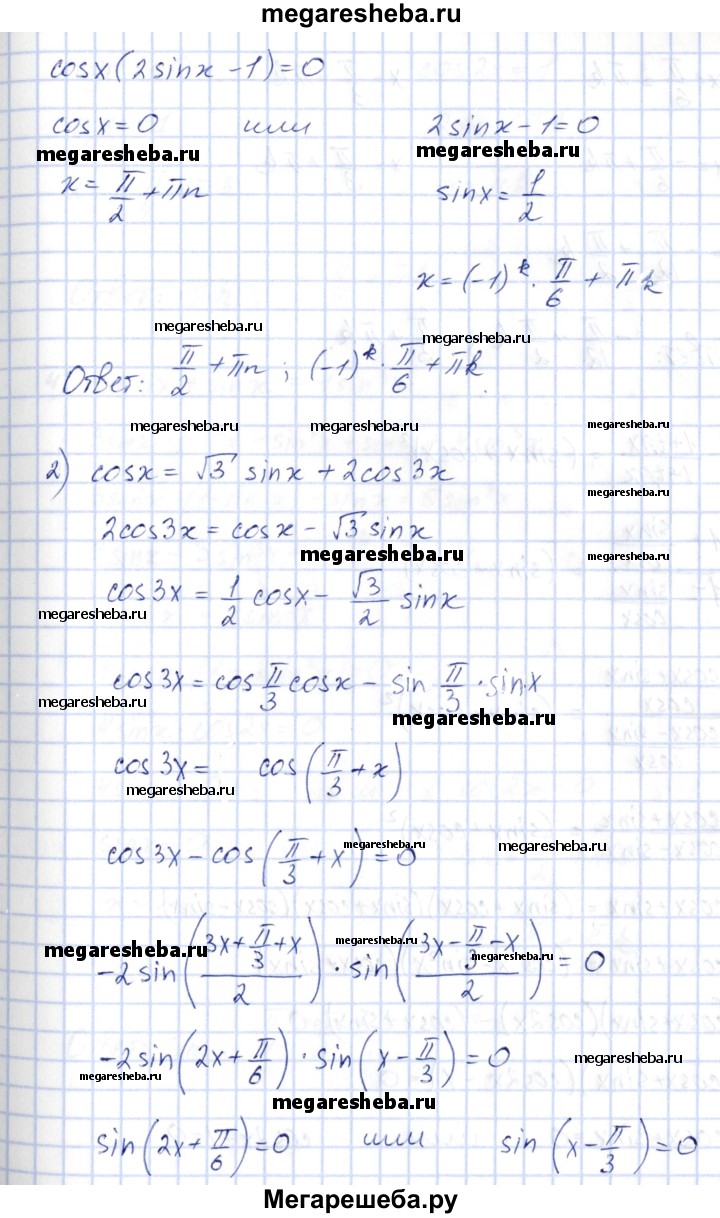 megaresheba.ru
cosx(2sinx-1)=0
cosx=0 или 2sinx-1=0
megaresheba.ru megaresheba.ru
x=π/2+πn sinx=1/2
x=(-1)^k·π/6+πk
megaresheba.ru megaresheba.ru
Ответ: π/2+πn; (-1)^k·π/6+πk.
megaresheba.ru megaresheba.ru megaresheba.ru
2) cosx=√3 sinx+2cos3x
megaresheba.ru
2cos3x=cosx-√3 sinx
megaresheba.ru
cos3x=1/2 cosx-√3/2 sinx
megaresheba.ru megaresheba.ru
cos3x=cos π/3 cosx-sin π/3·sinx
megaresheba.ru megaresheba.ru
cos3x= cos(π/3+x)
megaresheba.ru
cos3x-cos(π/3+x)=0
megaresheba.ru megaresheba.ru
-2sin((3x+π/3+x)/2)·sin((3x-π/3-x)/2)=0
megaresheba.ru megaresheba.ru megaresheba.ru
-2sin(2x+π/6)·sin(x-π/3)=0
megaresheba.ru megaresheba.ru
megaresheba.ru
sin(2x+π/6)=0 или sin(x-π/3)=0
Мегарешеба.ру